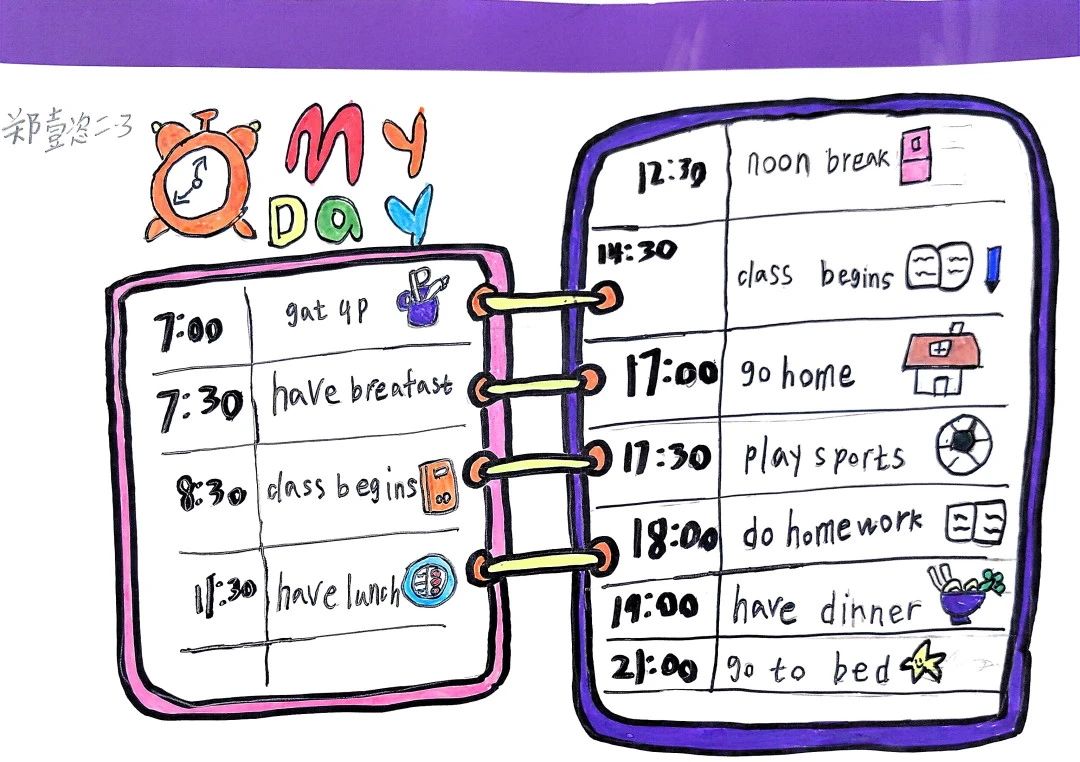 郑壹恣二.3
My
Day
7:00 gat up
7:30 have breafast
8:30 class begins
11:30 have lunch
12:30 noon break
14:30 class begins
17:00 go home
17:30 play sports
18:00 do homework
19:00 have dinner
21:00 go to bed